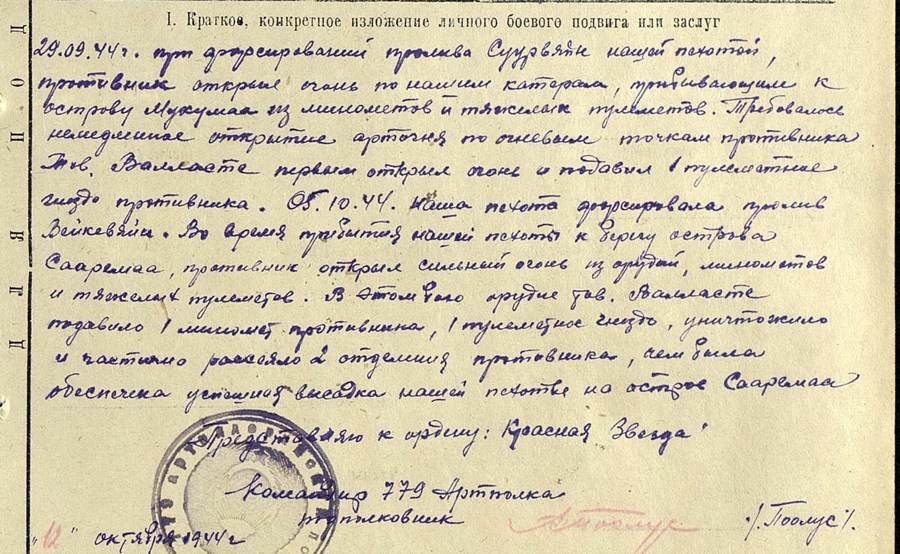 I. Краткое, конкретное изложение личного боевого подвига или заслуг
29.09.44г. при форсировании пролива Суурвяйн нашей пехотой,
противник открыл огонь по нашим катерам, прибывающим к
острову Мухумаа из минометов и тяжелых пулеметов. Требовалось
немедленное открытие артогня по огневым точкам противника
Тов. Валласте первым открыл огонь и подавил 1 пулеметное
гнездо противника. 05.10.44. наша пехота форсировала пролив
Вейкевяйн. Во время прибытия нашей пехоты к берегу острова
Сааремаа, противник открыл сильный огонь из орудий, минометов
и тяжелых пулеметов. В этом бою орудие тов. Валласте
подавило 1 миномет противника, 1 пулеметное гнездо, уничтожило
и частично рассеяло 2 отделения противника, чем была
обеспечена успешная высадка нашей пехоты на остров Сааремаа
Представляю к ордену: Красная Звезда
Командир 779 Артполка
подполковник /Поолус/.
"12" октября 1944г
ДЛЯ ПОД